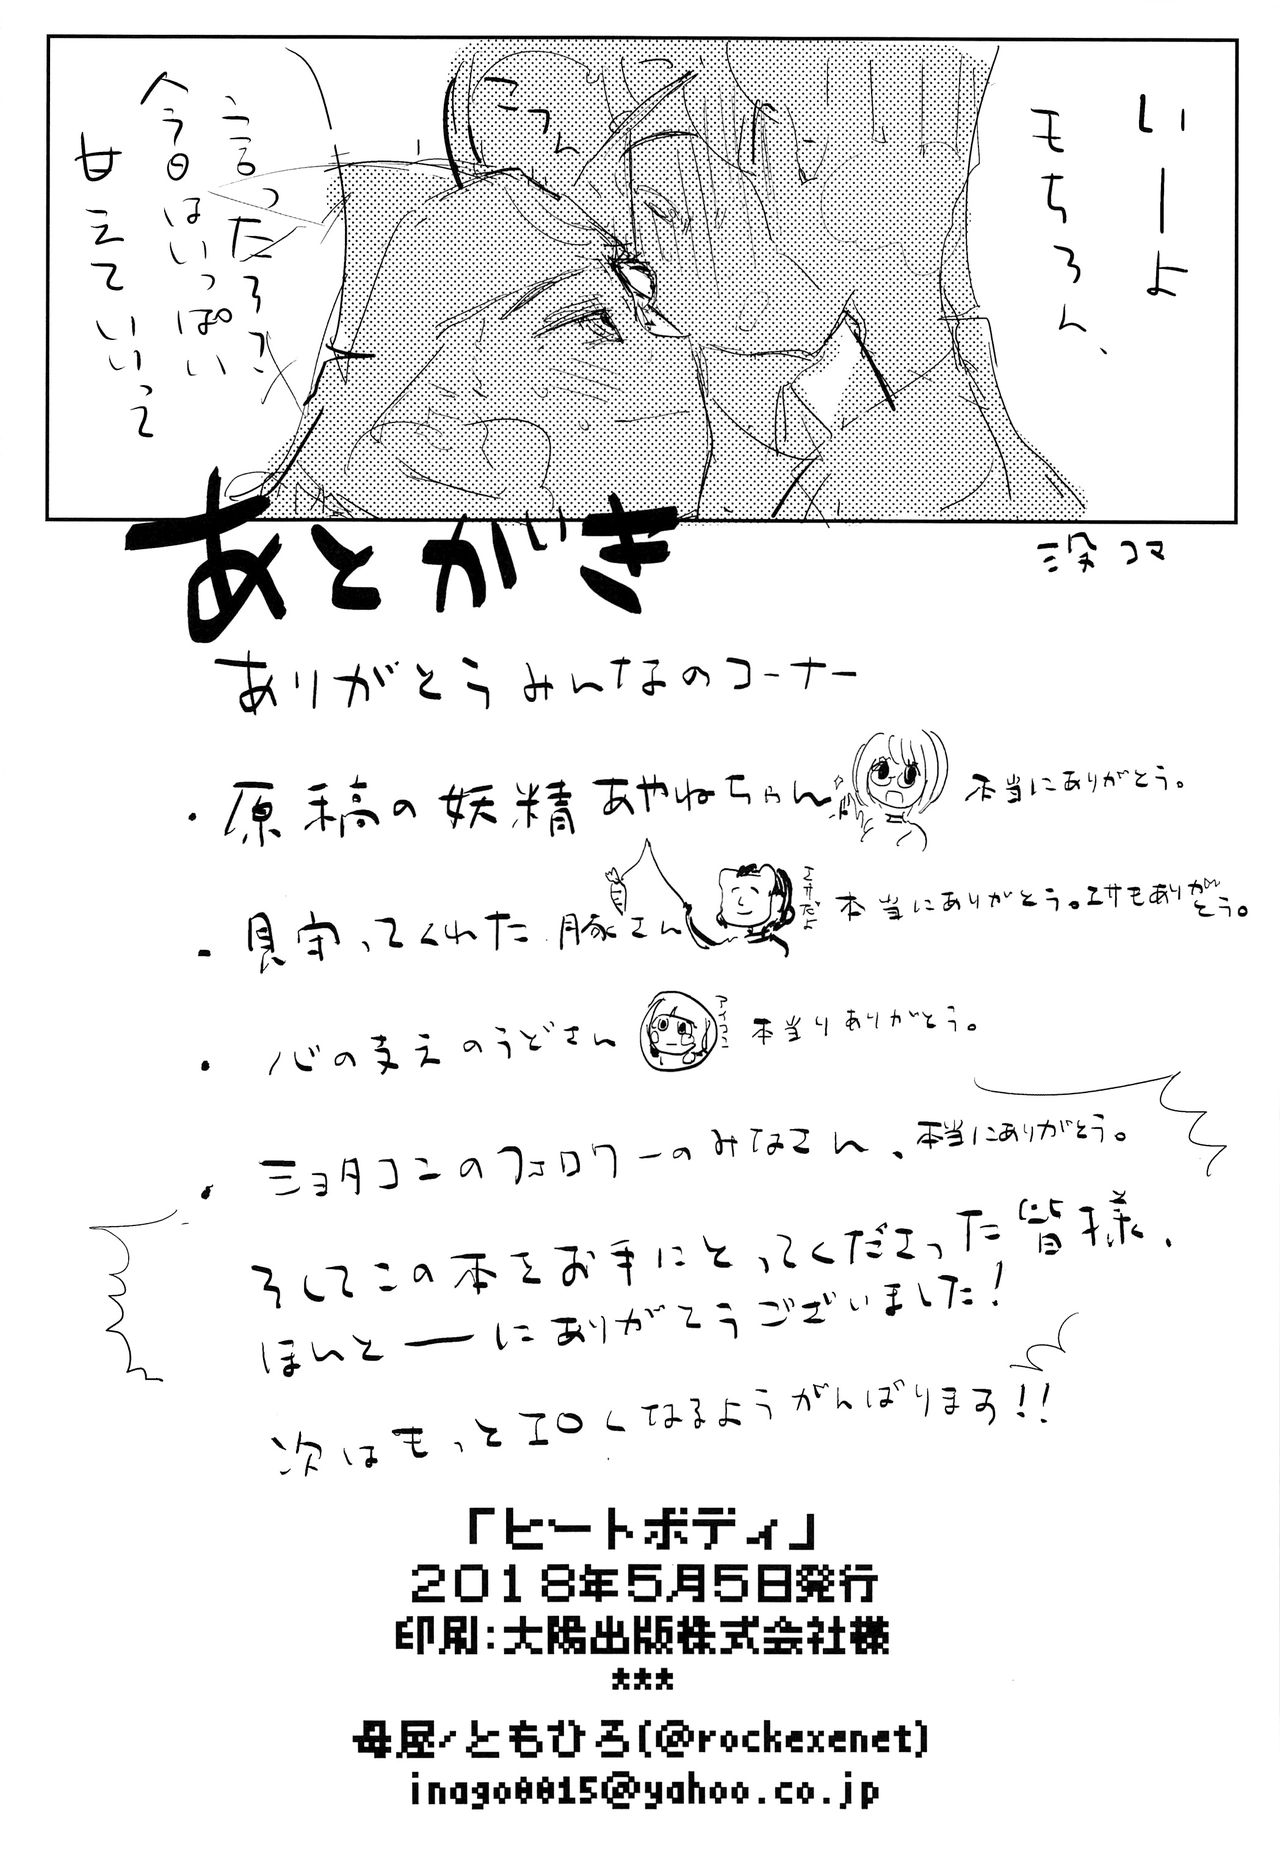 いーよ
もちろん、
こつん
言ったろ?
今日はいっぱい
甘えていいって
没コマ
あとがき
ありがとうみんなのコーナー
・原稿の妖精あやねちゃん 本当にありがとう。
・見守ってくれた豚さん エサだよ 本当にありがとう。エサもありがとう。
・心の支えのうどさん アイコン 本当りありがとう。
・ショタコンのフォロワーのみなさん、本当にありがとう。
そしてこの本をお手にとってくださった皆様、
ほんとーにありがとうございました!
次はもっとエロくなるようがんばります!!
「ヒートボディ」
2018年5月5日発行
印刷:大陽出版株式会社様
***
母屋/ともひろ(@rockexenet)
inago0015@yahoo.co.jp